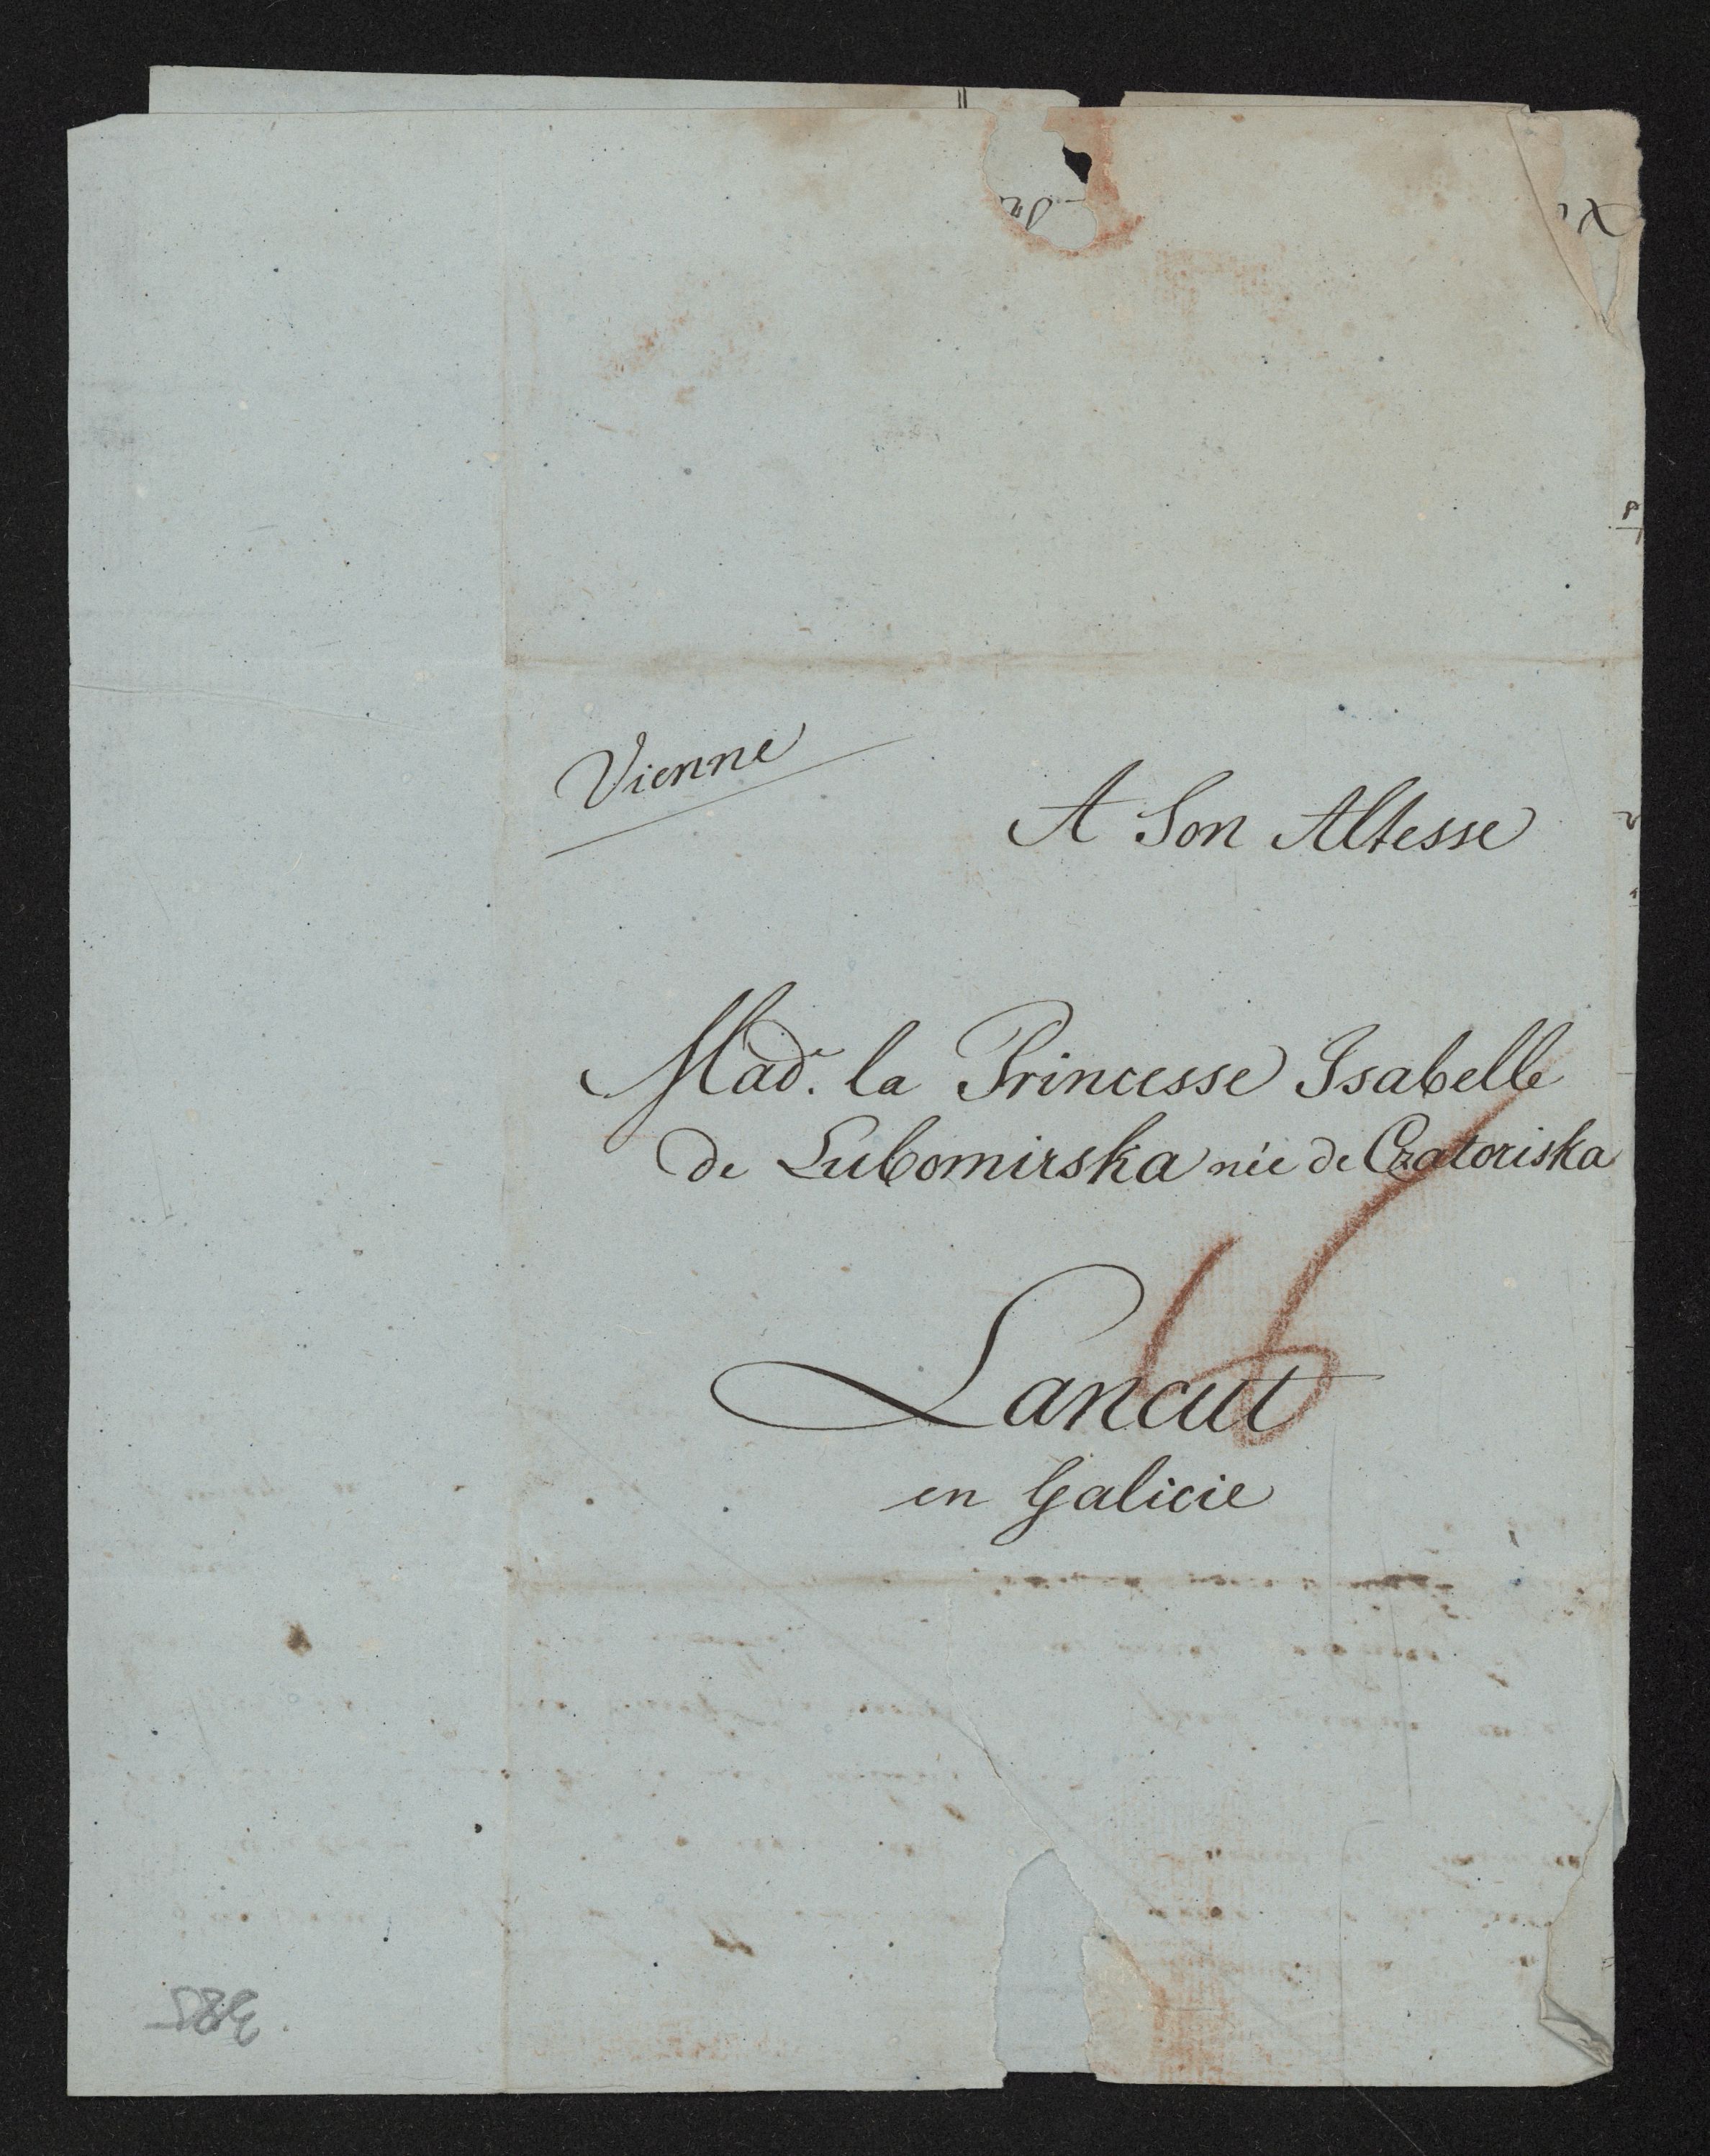 Vienne
A Son Altesse
Made. la Princesse Isabelle
de Lubomirska née de Czatoriska
16
Lancut
en Galicie
385